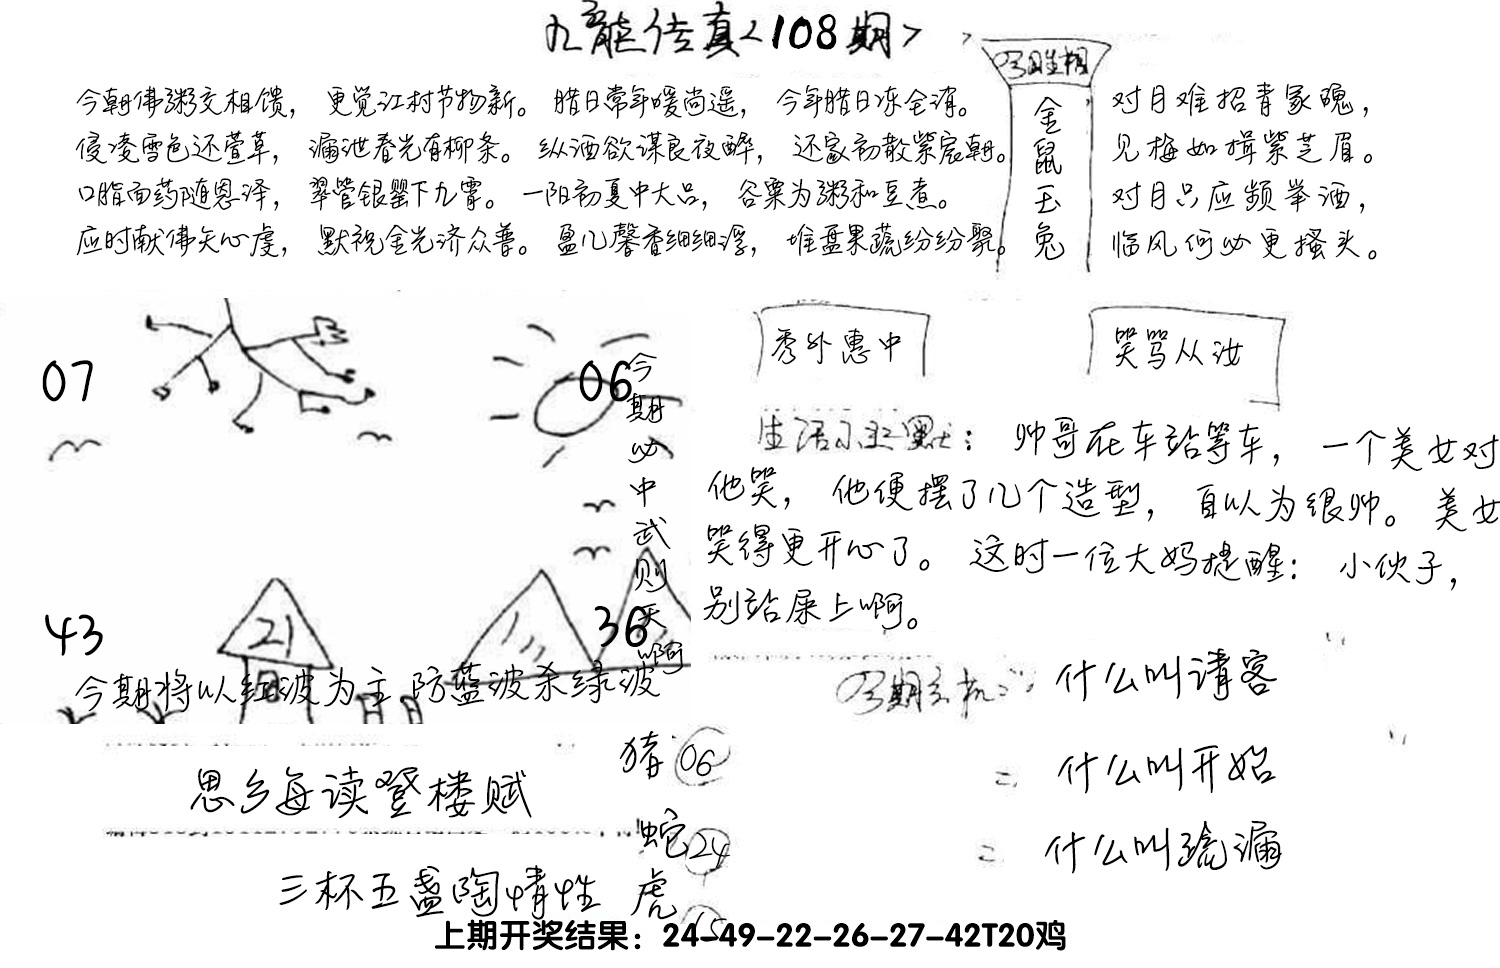 九龙传真<108期>
今期生相
金鼠玉兔
今朝佛粥交相馈， 更觉江村节物新。 腊日常年暖尚遥， 今年腊日冻全消。
侵凌雪色还萱草， 漏泄春光有柳条。 纵酒欲谋良夜醉， 还家初散紫宸朝。
口脂面药随恩泽， 翠管银罂下九霄。 一阳初夏中大吕， 谷粟为粥和豆煮。
应时献佛矢心虔， 默祝金光济众普。 盈几馨香细细浮， 堆盘果蔬纷纷聚。
对月难招青冢魄，
见梅如揖紫芝眉。
对月只应频举酒，
临风何必更搔头。
07
06
43
36
21
今期必中武则天啊
今期将以红波为主防蓝波杀绿波
秀外惠中
笑骂从汝
生活小幽默： 帅哥在车站等车， 一个美女对
他笑， 他便摆了几个造型， 自以为很帅。 美女
笑得更开心了。 这时一位大妈提醒： 小伙子，
别站屎上啊。
今期玄机: 什么叫请客
= 什么叫开始
= 什么叫疏漏
思乡每读登楼赋
三杯五盏陶情性
猪06
蛇24
虎15
上期开奖结果：24-49-22-26-27-42T20鸡